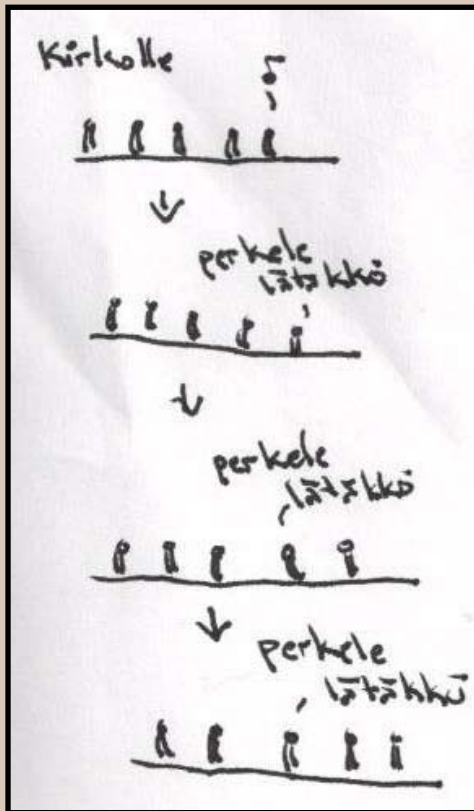 Kirkolle
perkele
lätäkkö
perkele
lätäkkö
perkele
lätäkkö